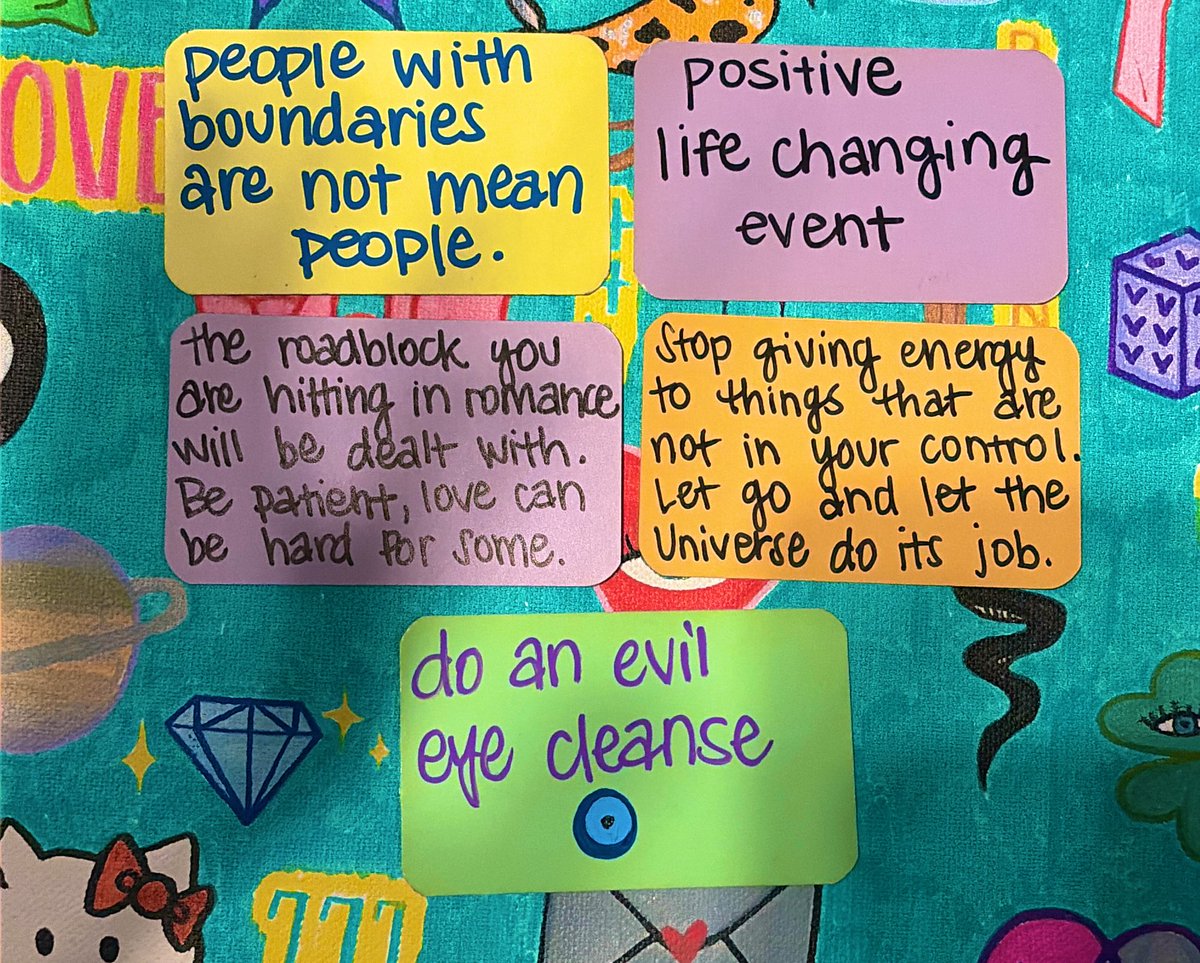 OVE
people with
boundaries
are not mean
people.
positive
life changing
event
the roadblock you
are hitting in romance
will be dealt with.
Be patient, love can
be hard for some.
Stop giving energy
to things that are
not in your control.
Let go and let the
Universe do its job.
do an evil
eye cleanse